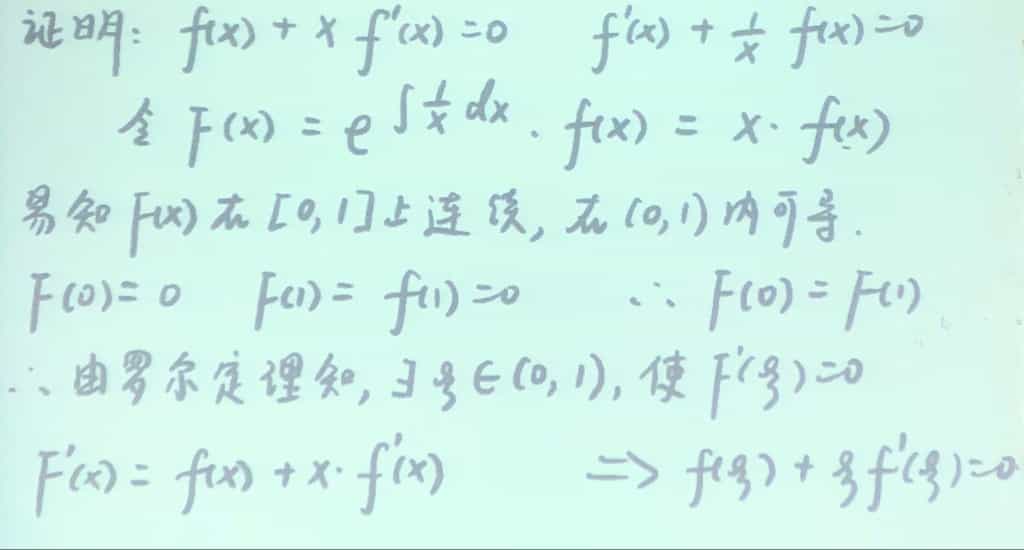 证明: f(x) + x f'(x) = 0 f'(x) + 1/x f(x) = 0
令 F(x) = e^{∫ 1/x dx} · f(x) = x · f(x)
易知 F(x) 在 [0, 1] 上连续, 在 (0, 1) 内可导.
F(0) = 0 F(1) = f(1) = 0 ∴ F(0) = F(1)
∴ 由罗尔定理知, ∃ ξ ∈ (0, 1), 使 F'(ξ) = 0
F'(x) = f(x) + x · f'(x) ⇒ f(ξ) + ξ f'(ξ) = 0